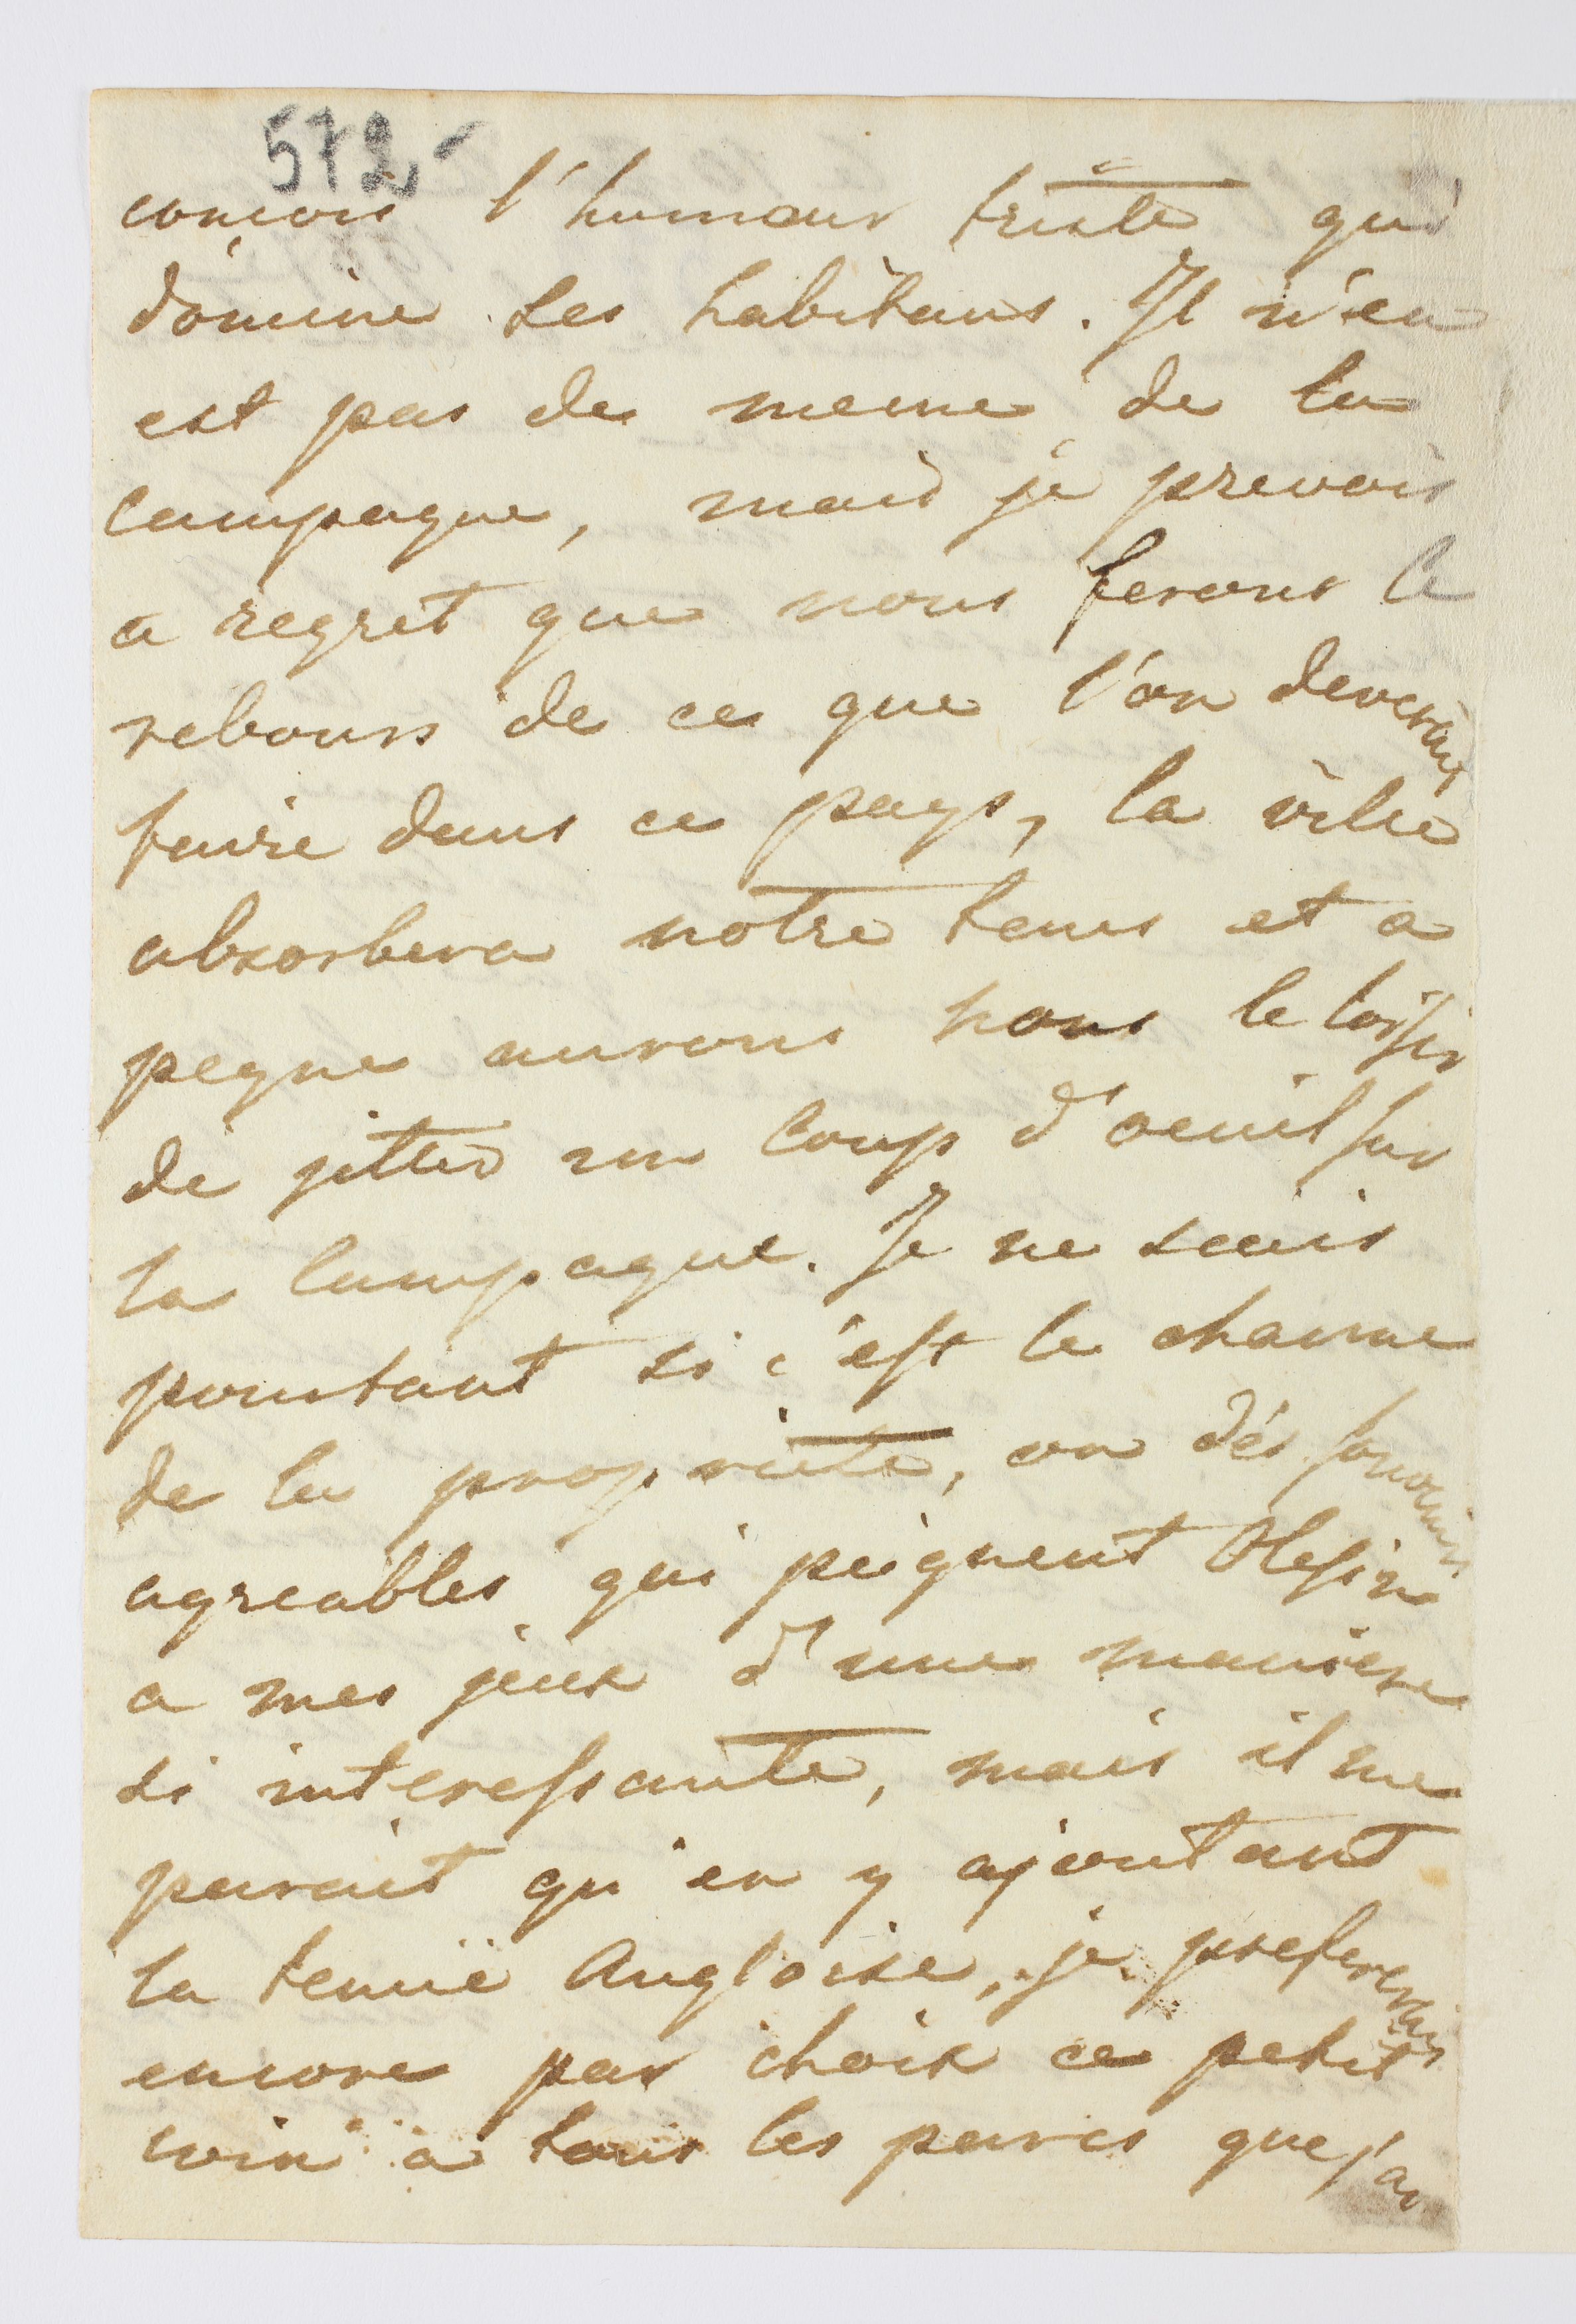 572-
conçois l'humour triste qui
domine les habitans. Il n'en
est pas de meme de la
Campagne, mais je prevois
a regret que nous ferons le
rebours de ce que l'on deveroit
faire dans ce pays, la ville
absorbera notre tems et a
peigne aurons nous le loisir
de jetter un coup d'oeuil sur
la Campagne. Je ne scais
pourtant si c'est le charme
de la proprieté, ou dés souvenirs
agreables qui peignent Olesin
a mes jeux d'une maniere
si interessante, mais il me
parait qu'en y ajoutant
la tenuë Angloise, je prefererais
encore par choix ce petit
coin a tous les parcs que j'ai